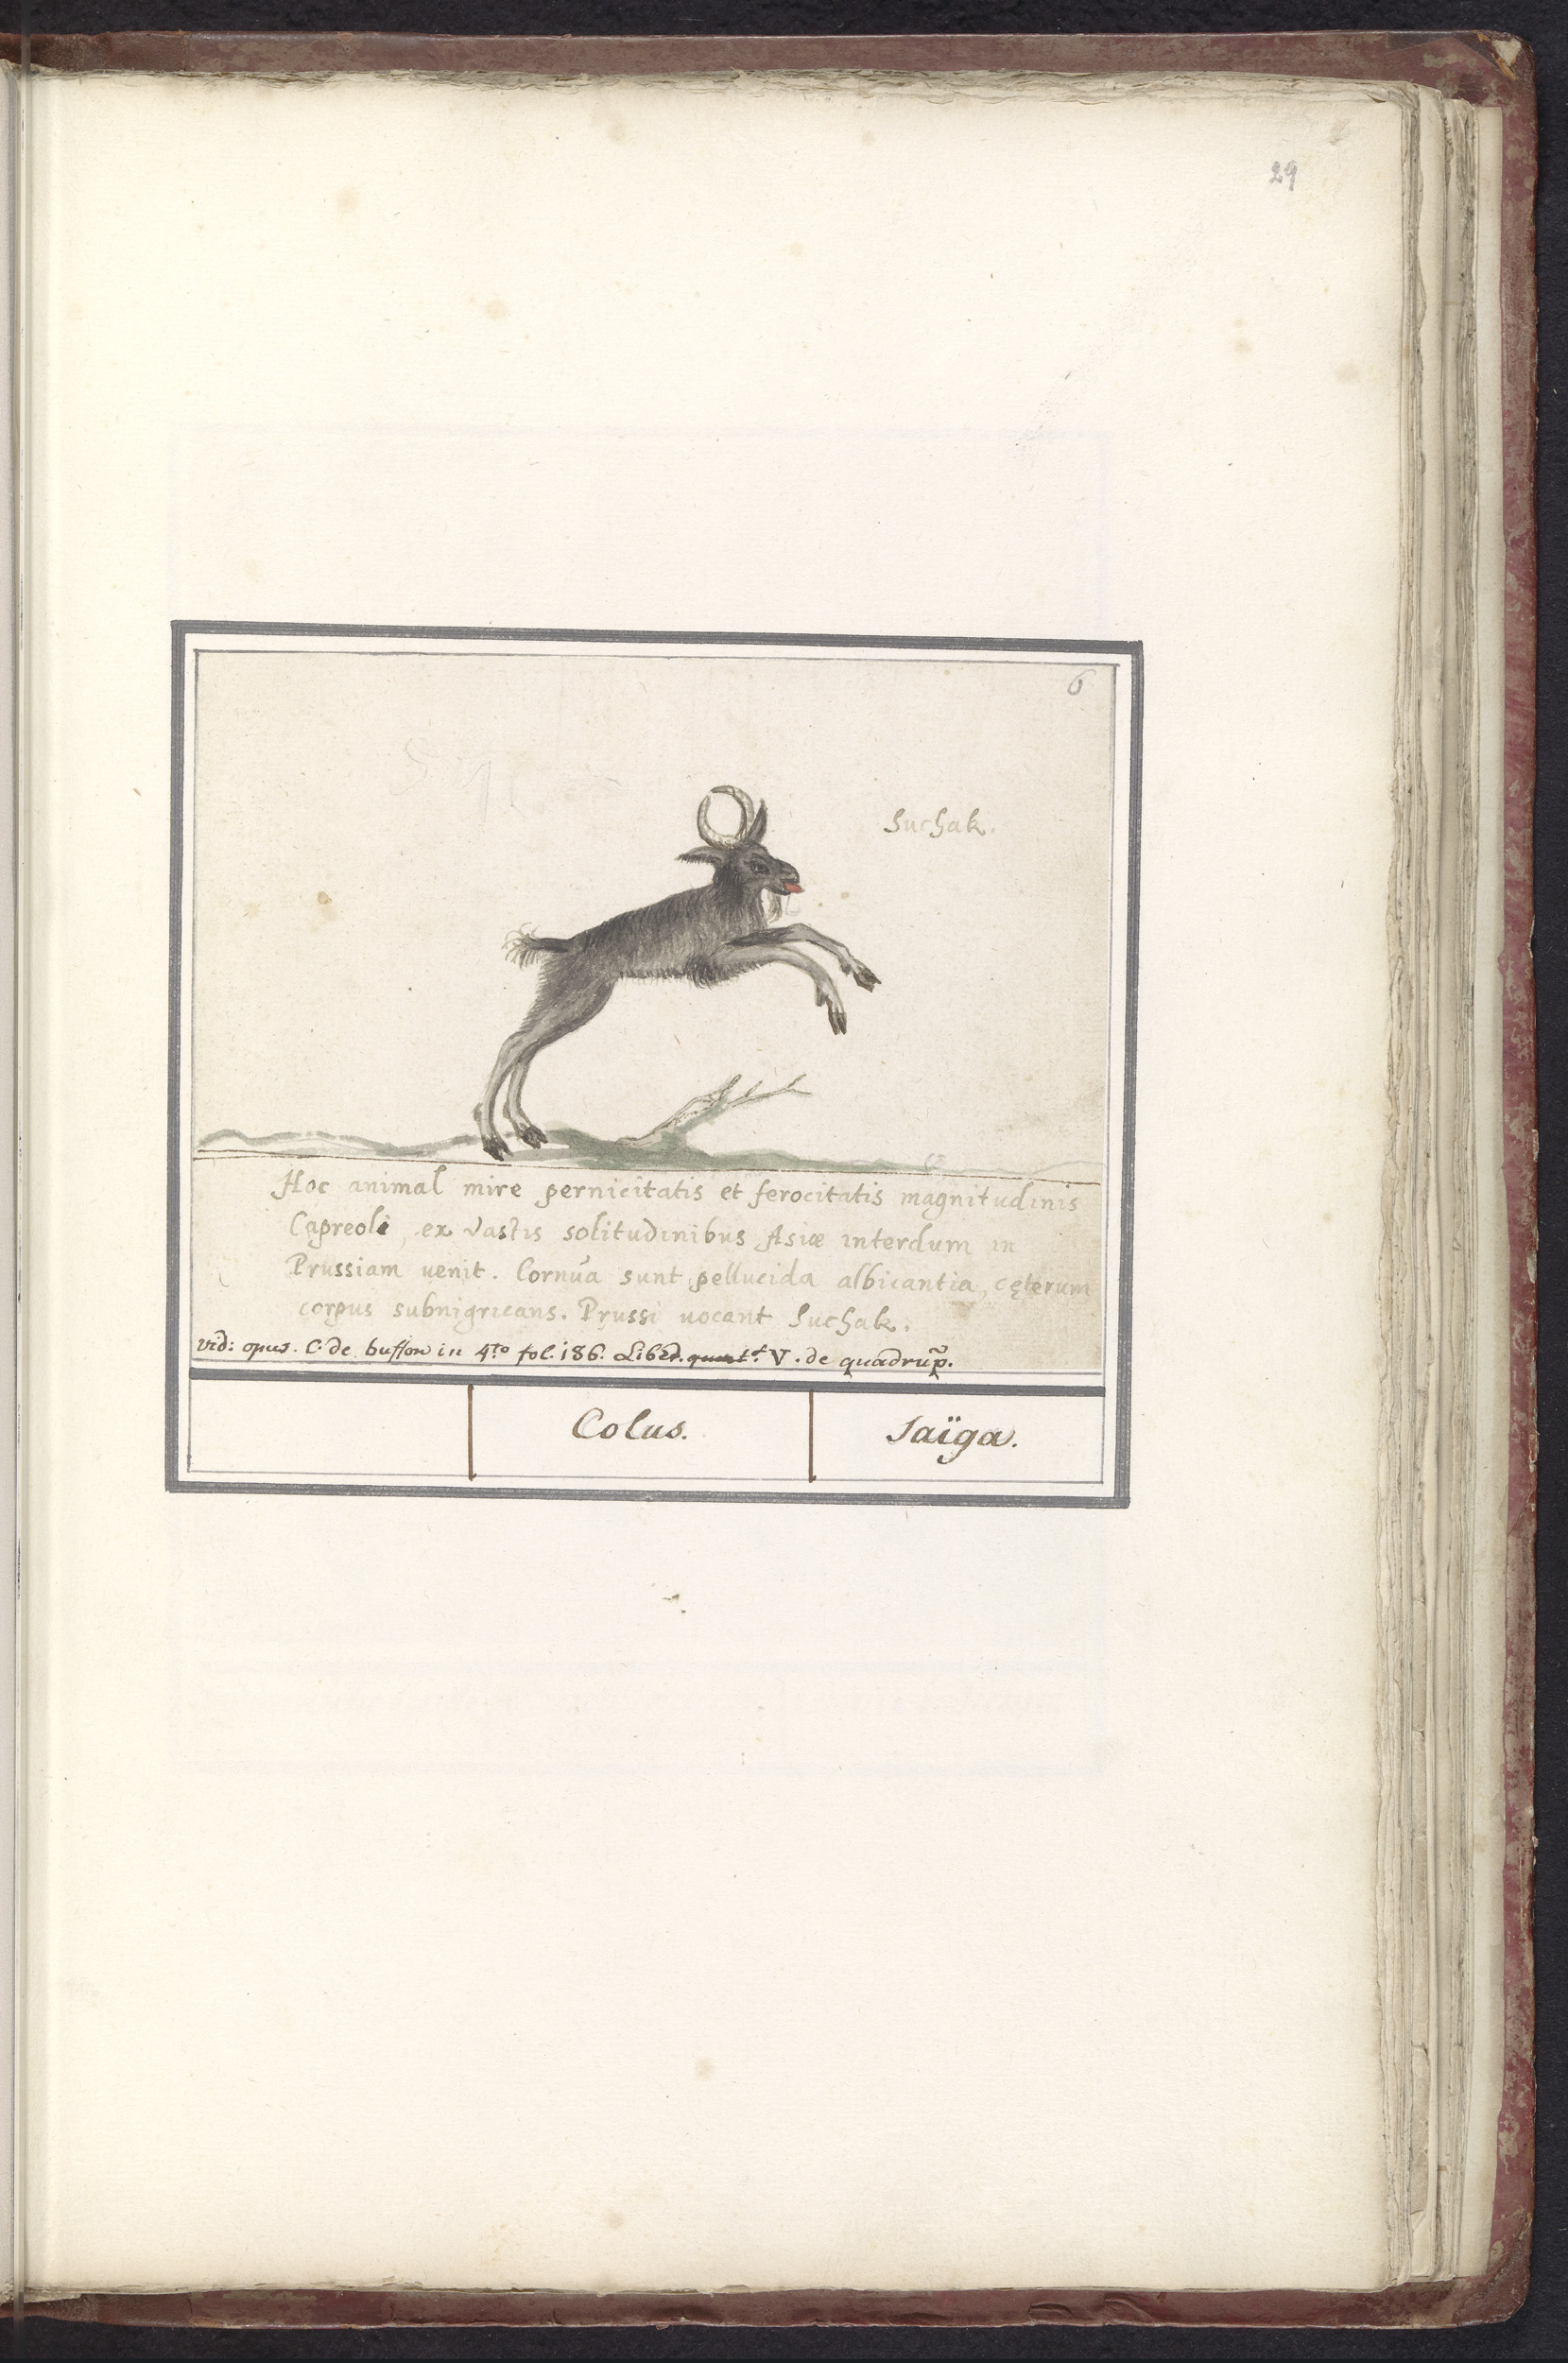 29
6
Suchak.
Hoc animal mire pernicitatis et ferocitatis magnitudinis
Capreoli, ex vastis solitudinibus Asiæ interdum in
Prussiam uenit. Cornua sunt pellucida albicantia, cęterum
corpus subnigricans. Prussi uocant Suchak.
vid: opus. C. de buffon in 4to fol. 186. V. de quadrup.
Colus.
Saïga.